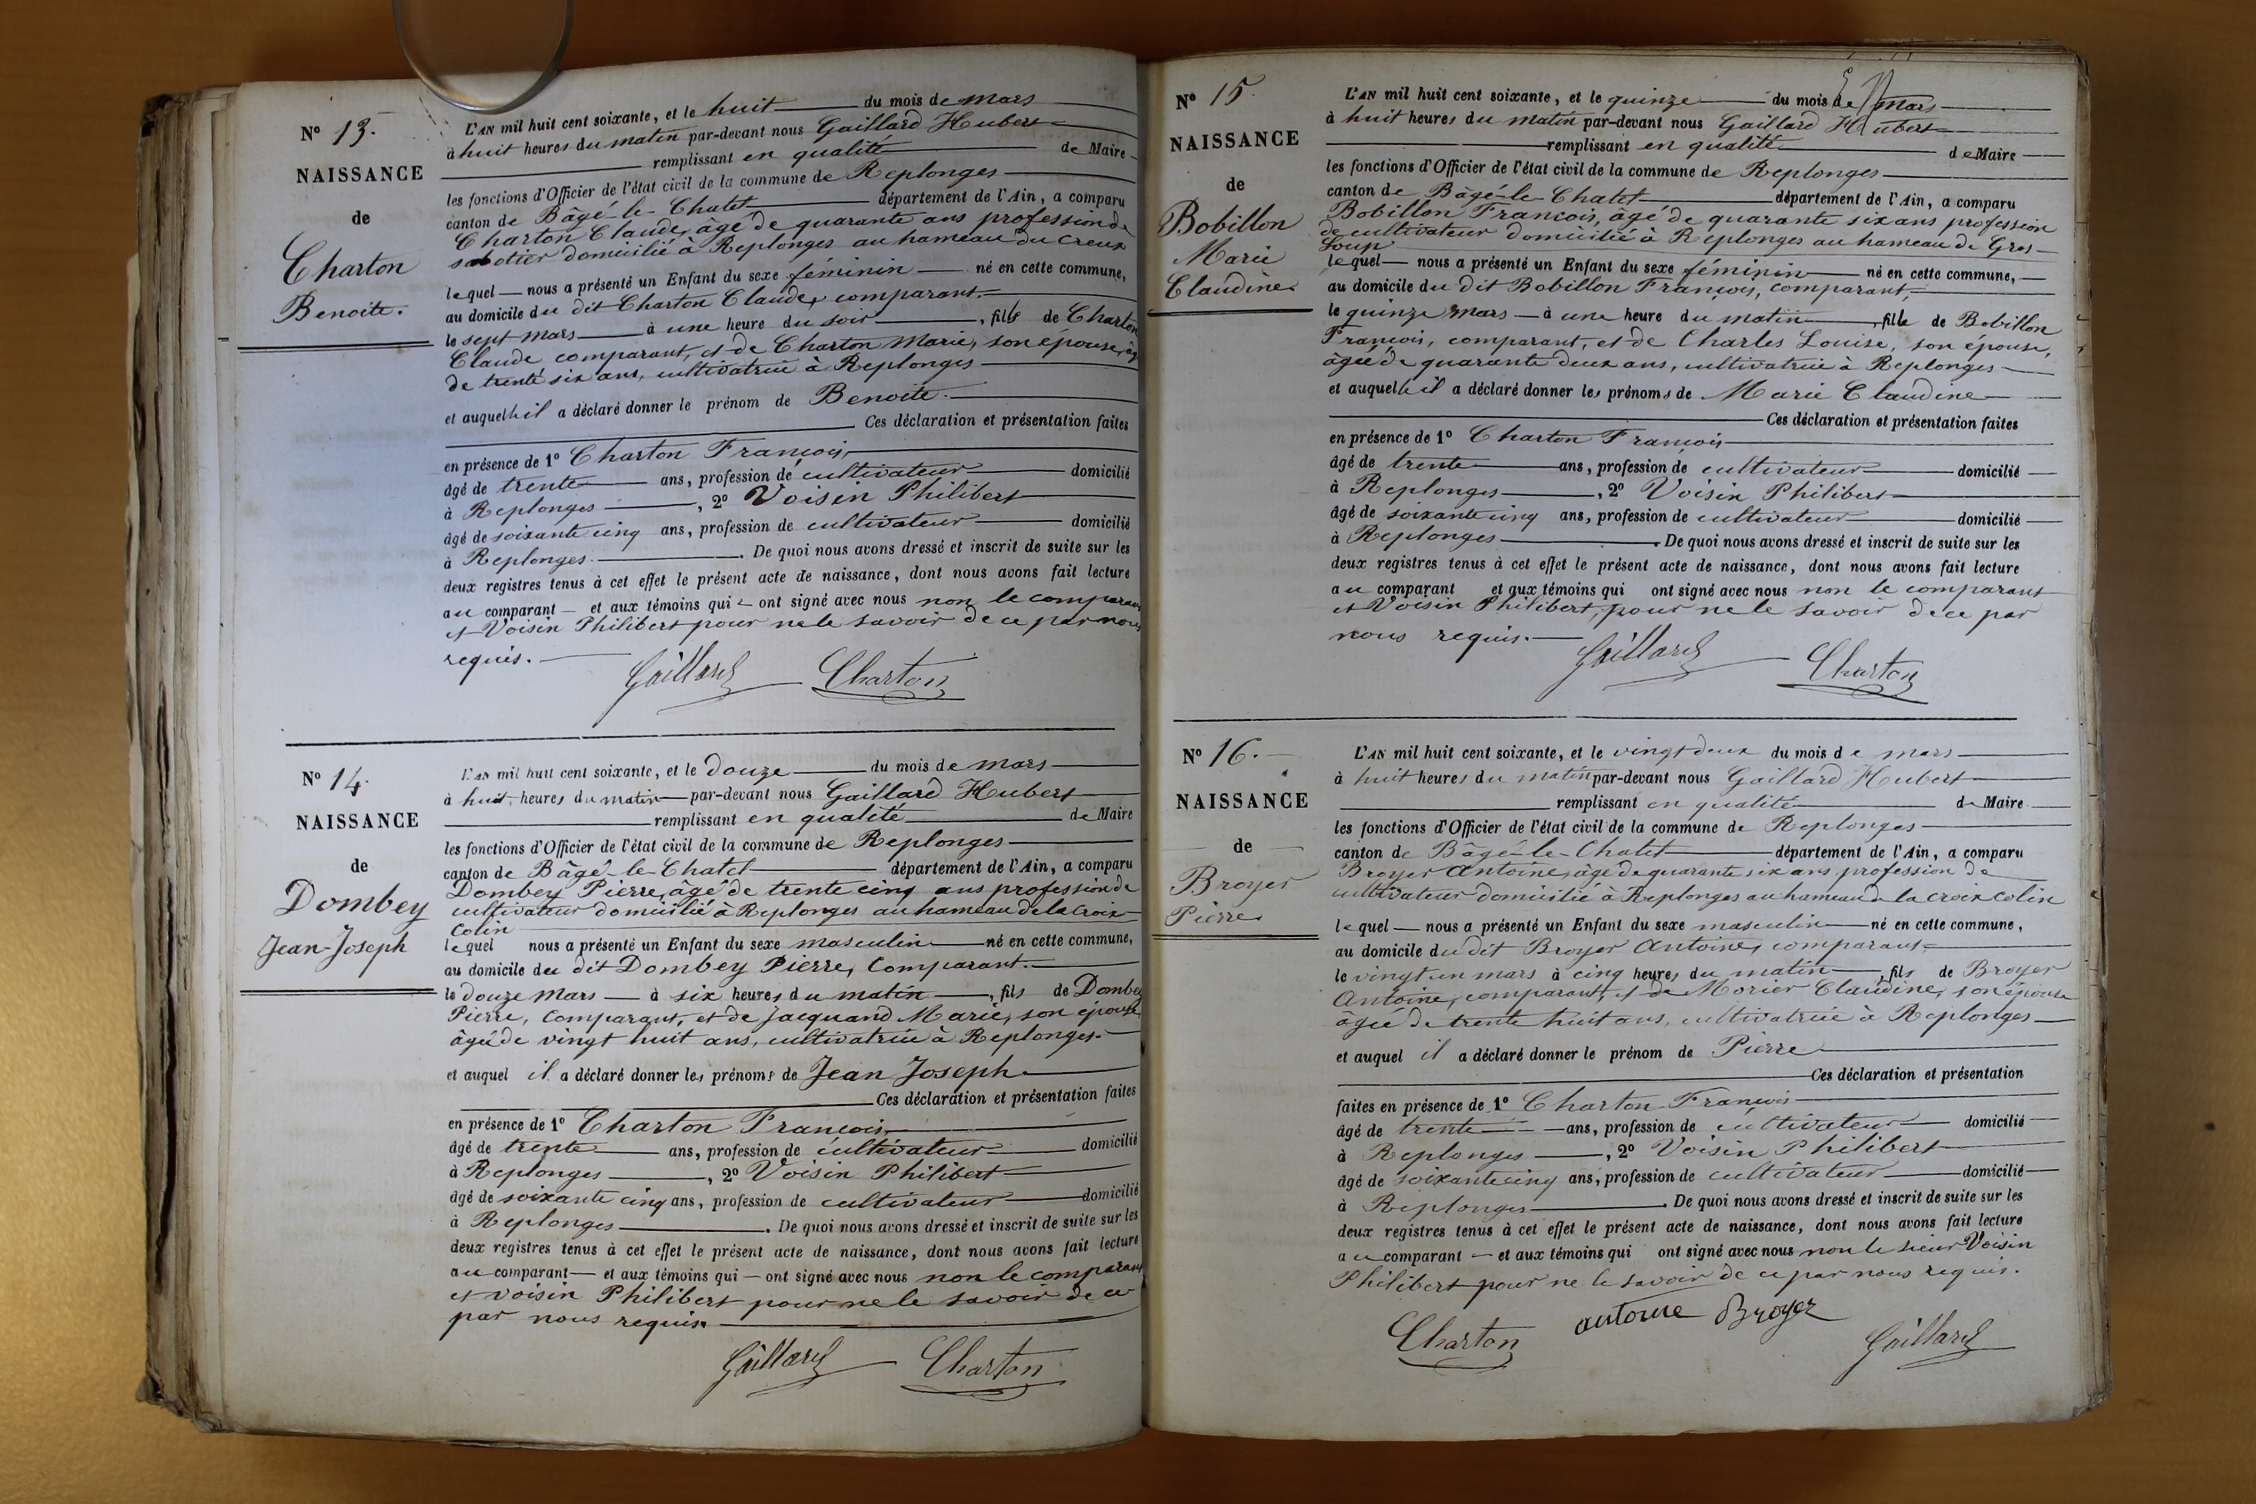 N° 13.
NAISSANCE
de
Charton
Benoite.
L'AN mil huit cent soixante, et le huit du mois de mars
à huit heures du matin par-devant nous Gaillard Hubert
remplissant en qualité de Maire
les fonctions d'Officier de l'état civil de la commune de Replonges
canton de Bâgé-le-Chatel département de l'Ain, a comparu
Charton Claude, âgé de quarante ans profession de
sabotier domicilié à Replonges au hameau du Creux
lequel nous a présenté un Enfant du sexe féminin né en cette commune,
au domicile du dit Charton Claude, comparant.
le sept mars à une heure du soir, fille de Charton
Claude comparant, et de Charton Marie, son épouse, âgé
de trente six ans, cultivatrice à Replonges
et auquelle il a déclaré donner le prénom de Benoite.
Ces déclaration et présentation faites
en présence de 1° Charton François
âgé de trente ans, profession de cultivateur domicilié
à Replonges, 2° Voisin Philibert
âgé de soixante cinq ans, profession de cultivateur domicilié
à Replonges. De quoi nous avons dressé et inscrit de suite sur les
deux registres tenus à cet effet le présent acte de naissance, dont nous avons fait lecture
au comparant et aux témoins qui ont signé avec nous non le comparant
et Voisin Philibert pour ne le savoir de ce par nous
requis.
Gaillard Charton
N° 14.
NAISSANCE
de
Dombey
Jean-Joseph
L'AN mil huit cent soixante, et le douze du mois de mars
à huit heures du matin par-devant nous Gaillard Hubert
remplissant en qualité de Maire
les fonctions d'Officier de l'état civil de la commune de Replonges
canton de Bâgé-le-Chatel département de l'Ain, a comparu
Dombey Pierre, âgé de trente cinq ans profession de
cultivateur domicilié à Replonges au hameau de la Croix
Colin
lequel nous a présenté un Enfant du sexe masculin né en cette commune,
au domicile du dit Dombey Pierre, Comparant.
le douze mars à six heures du matin, fils de Dombey
Pierre, Comparant, et de Jacquand Marie, son épouse
âgée de vingt huit ans, cultivatrice à Replonges.
et auquel il a déclaré donner les prénoms de Jean Joseph
Ces déclaration et présentation faites
en présence de 1° Charton François
âgé de trente ans, profession de cultivateur domicilié
à Replonges, 2° Voisin Philibert
âgé de soixante cinq ans, profession de cultivateur domicilié
à Replonges. De quoi nous avons dressé et inscrit de suite sur les
deux registres tenus à cet effet le présent acte de naissance, dont nous avons fait lecture
au comparant et aux témoins qui ont signé avec nous non le comparant
et voisin Philibert pour ne le savoir de ce
par nous requis.
Gaillard Charton
N° 15
NAISSANCE
de
Bobillon
Marie
Claudine
L'AN mil huit cent soixante, et le quinze du mois de mars
à huit heures du matin par-devant nous Gaillard Hubert
remplissant en qualité de Maire
les fonctions d'Officier de l'état civil de la commune de Replonges
canton de Bâgé-le-Chatel département de l'Ain, a comparu
Bobillon François, âgé de quarante six ans profession
de cultivateur domicilié à Replonges au hameau de Gros
Loup
lequel nous a présenté un Enfant du sexe féminin né en cette commune,
au domicile du dit Bobillon François, comparant,
le quinze mars à une heure du matin, fille de Bobillon
François, comparant, et de Charles Louise, son épouse,
âgée de quarante deux ans, cultivatrice à Replonges
et auquelle il a déclaré donner les prénoms de Marie Claudine
Ces déclaration et présentation faites
en présence de 1° Charton François
âgé de trente ans, profession de cultivateur domicilié
à Replonges, 2° Voisin Philibert
âgé de soixante cinq ans, profession de cultivateur domicilié
à Replonges. De quoi nous avons dressé et inscrit de suite sur les
deux registres tenus à cet effet le présent acte de naissance, dont nous avons fait lecture
au comparant et aux témoins qui ont signé avec nous non le comparant
et Voisin Philibert, pour ne le savoir de ce par
nous requis.
Gaillard Charton
N° 16.
NAISSANCE
de
Broyer
Pierre
L'AN mil huit cent soixante, et le vingt deux du mois de mars
à huit heures du matin par-devant nous Gaillard Hubert
remplissant en qualité de Maire
les fonctions d'Officier de l'état civil de la commune de Replonges
canton de Bâgé-le-Chatel département de l'Ain, a comparu
Broyer Antoine, âgé de quarante six ans, profession de
cultivateur domicilié à Replonges au hameau de la croix colin
lequel nous a présenté un Enfant du sexe masculin né en cette commune,
au domicile du dit Broyer Antoine, comparant
le vingt un mars à cinq heures du matin, fils de Broyer
Antoine, comparant, et de Morier Claudine, son épouse
âgée de trente huit ans, cultivatrice à Replonges
et auquel il a déclaré donner le prénom de Pierre
Ces déclaration et présentation
faites en présence de 1° Charton François
âgé de trente ans, profession de cultivateur domicilié
à Replonges, 2° Voisin Philibert
âgé de soixante cinq ans, profession de cultivateur domicilié
à Replonges. De quoi nous avons dressé et inscrit de suite sur les
deux registres tenus à cet effet le présent acte de naissance, dont nous avons fait lecture
au comparant et aux témoins qui ont signé avec nous non le sieur Voisin
Philibert pour ne le savoir de ce par nous requis.
Charton antoine Broyer Gaillard